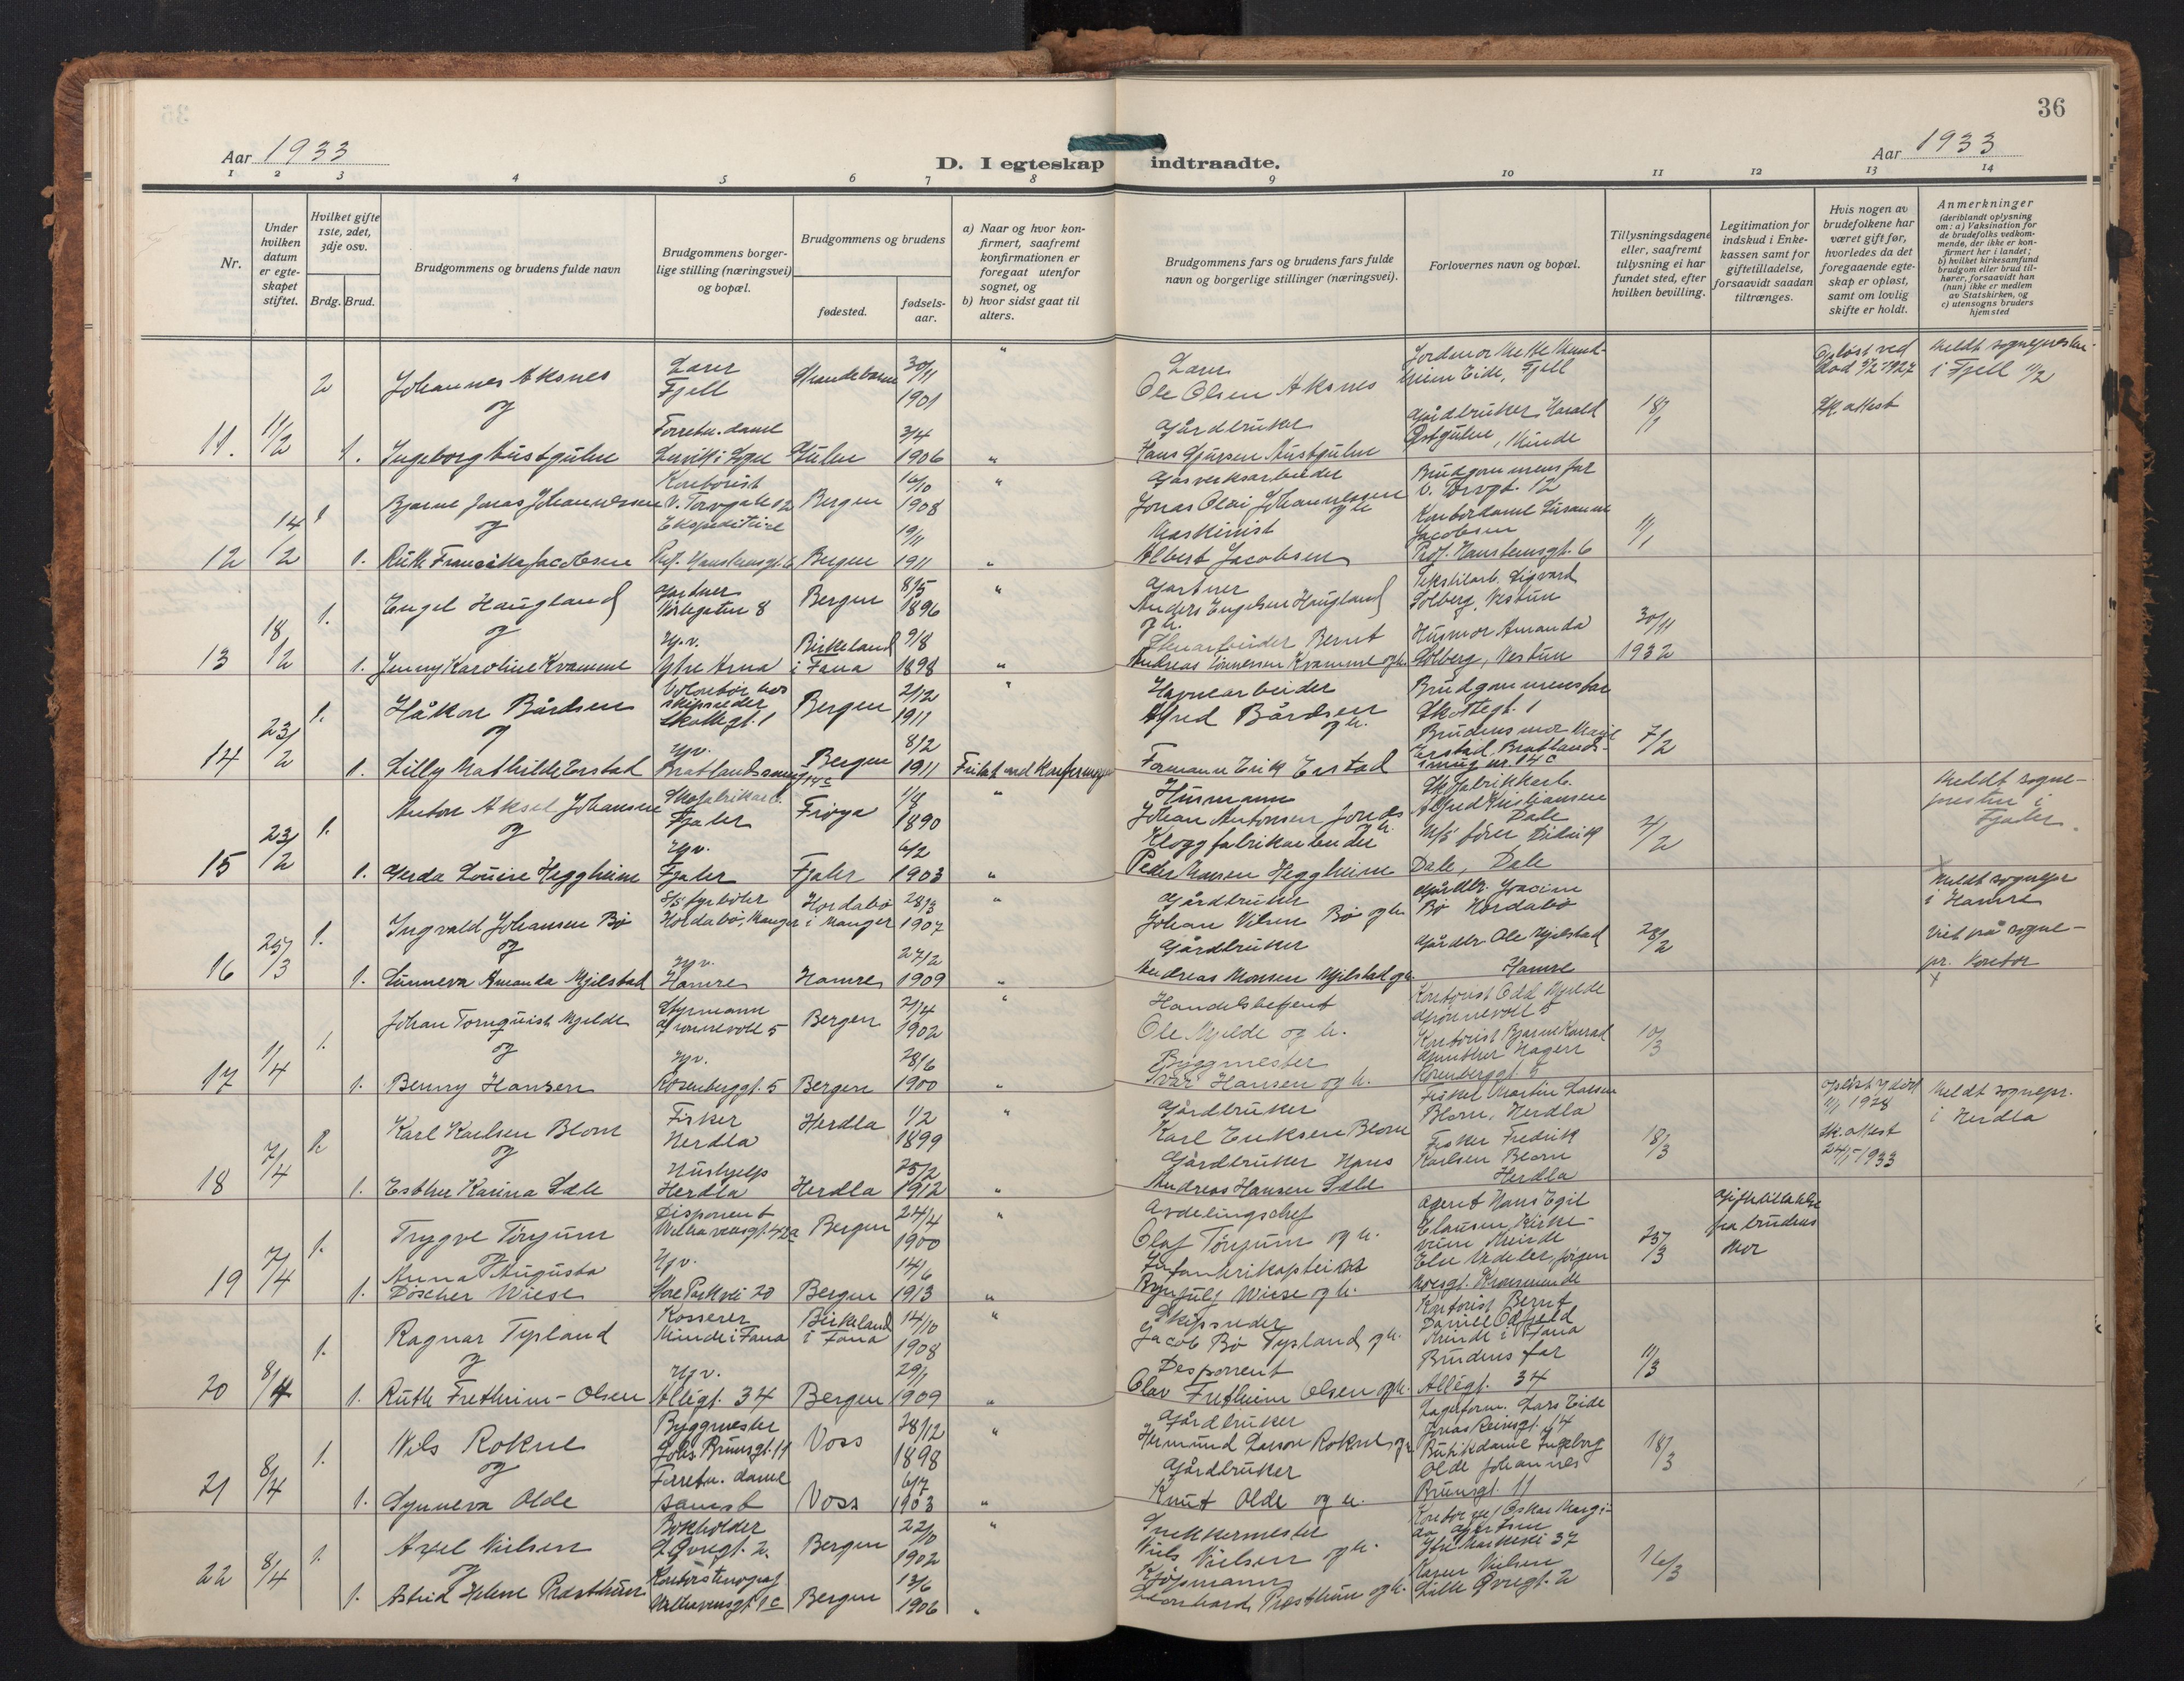 36
Aar 1933
D. I egteskap indtraadte.
Aar 1933
1 2 3 4 5 6 7 8 9 10 11 12 13 14
Nr.
Under hvilken datum er egteskapet stiftet.
Hvilket gifte 1ste, 2det, 3dje osv.
Brdg. Brud.
Brudgommens og brudens fulde navn
Brudgommens borgerlige stilling (næringsvei) og bopæl.
Brudgommens og brudens
fødested.
fødselsaar.
a) Naar og hvor konfirmert, saafremt konfirmationen er foregaat utenfor sognet, og
b) hvor sidst gaat til alters.
Brudgommens fars og brudens fars fulde navn og borgerlige stillinger (næringsvei).
Forlovernes navn og bopæl.
Tillysningsdagene eller, saafremt tillysning ei har fundet sted, efter hvilken bevilling.
Legitimation for indskud i Enkekassen samt for giftetilladelse, forsaavidt saadan tiltrænges.
Hvis nogen av brudefolkene har været gift før, hvorledes da det foregaaende egteskap er opløst, samt om lovlig skifte er holdt.
Anmerkninger
(deriblandt oplysning om: a) Vaksination for de brudefolks vedkommende, der ikke er konfirmert her i landet; b) hvilket kirkesamfund brudgom eller brud tilhører, forsaavidt han (hun) ikke er medlem av Statskirken, og c) utensogns bruders hjemsted
11. 11/2
2 Johannes Aksnes Lærer Fjell Strandebarm 30/11 1901 "
og
1. Ingeborg Austgulen Forretn. dame Gulen 3/4 1906 "
Lærer Ole Olsen Aksnes
Gårdbruker Hans Austgulen
Jordmor Mette Mundheim Eide, Fjell
Gårdbruker Harald Østgulen, Minde
18/1
Opløst ved død 1927
Sk. attest
Meldt sognepresten i Fjell
12 14/2
1 Bjarne Jonas Johannessen Kontorist V. Torvgate 12 Bergen 16/10 1908 "
og
1. Ruth Jacobsen Ekspeditrise Prof. Hansteensgt. 6 Bergen 19/11 1911 "
Gasverksarbeider Jonas Olai Johannessen og h.
Maskinist Albert Jacobsen
Brudgommens far V. Torvgt. 12
Kontordame Susanne Jacobsen Prof. Hansteensgt. 6
11/1
13 18/2
1. Engel Haugland Gartner 8 Bergen 8/5 1896 "
og
1. Jenny Karoline Kvamme Hjv. Ytre Arna Birkeland i Fana 9/8 1898 "
Gartner Anders Engelsen Haugland og h.
Bernt Andreas Kvamme og h.
Tekstilarb. Sigvard Solberg, Nestun
Husmor Amanda Solberg, Nestun
30/11 1932
14 23/2
1. Håkon Bårdsen Volontør hos skipsreder Skottegt. 1 Bergen 2/12 1911 "
og
1. Lilly Mathilde Erstad Hjv. Bratlandssmug 14c Bergen 8/2 1911
Havnearbeider Alfred Bårdsen og h.
Formann Erik Erstad
Brudgommens far Skottegt. 1
Brudens mor Erstad, Bratlandssmug nr. 14c
7/2
15 23/2
1. Anton Aksel Johansen Skofabrikarb. Fjaler Frøya 1/8 1890 "
og
1. Gerda Louise Heggheim Hjv. Fjaler Fjaler 6/2 1903 "
Husmann Johan Antonsen
Kloggfabrikarbeider Peder Hansen Heggheim
Skofabrikkarb. Alfred Kristiansen Dale
M/S fører Didrik Dale, Dale
Meldt sognepresten i Fjaler
16 25/3
1. Ingvald Johansen Bø S/S fyrbøter Hordabø, Manger Hordabø i Manger 28/3 1907 "
og
1. Sunneva Amanda Mjelstad Hjv. Hamre Hamre 27/2 1909 "
Gårdbruker Johan Nilsen Bø og h.
Gårdbruker Andreas Monsen Mjelstad og h.
Gårdbr. Joacim Bø Hordabø
Gårdbr. Ole Mjelstad Hamre
28/2
x Meldt sognepr. i Hamre
Viet på sognepr. kontor x
17 1/4
1. Johan Tornquist Mjelde Styrmann Grønnevoll 5 Bergen 2/4 1902 "
og
1. Benny Hansen Hjv. Rosenberggt. 5 Bergen 28/6 1900 "
Handelsbetjent Ole Mjelde og h.
Byggmester Hansen og h.
Kontorist Odd Mjelde Grønnevoll 5
Kontorist Bjarne Konrad Gunther Hagen Rosenberggt. 5
10/3
18 7/4
2 Karl Karlsen Blom Fisker Herdla Herdla 1/2 1899 "
og
1. Esther Karina Sæle Hushjelp Herdla Herdla 25/2 1912 "
Gårdbruker Karl Eriksen Blom
Gårdbruker Hans Andreas Hansen Sæle
Fisker Martin Larsen Blom, Herdla
Fisker Fredrik Karlsen Blom Herdla
18/3
Opløst v. død 1928
Sk. attest 1933
Meldt sognepr. i Herdla
19 7/4
1. Trygve Tönjum Disponent Welhavensgt. 42a Bergen 24/4 1900 "
og
1. Anna Augusta Döscher Wiese Hjv. Store Parkvei 20 Bergen 14/6 1913 "
Avdelingschef Olaf Tönjum og h.
Infanterikaptein Brynjulf Wiese og h.
Agent Hans Egil Clausen, Minde
23/3
Giftetillatelse fra brudens mor
20 8/4
1. Ragnar Typland Kasserer Minde i Fana Birkeland i Fana 14/10 1908 "
og
1. Ruth Fretheim-Olsen Hjv. Allégt. 34 Bergen 29/1 1909 "
Skipsreder Jacob Bø Typland og h.
Disponent Olav Fretheim Olsen og h.
Kontorist Bernt Daniel Odfjeld Minde i Fana
Brudens far Allégt. 34
11/3
21 8/4
1. Nils Rokne Byggmester Johs. Brunsgt. 11 Voss 28/12 1898 "
og
1. Synneva Olde Forretn. dame samest. Voss 6/7 1903 "
Gårdbruker Hermund Larson Rokne og h.
Gårdbruker Knut Olde og h.
Lagerform. Lars Eide Jonas Reinsgt. 14
Butikdame Ingeborg Olde Johannes Brunsgt. 11
18/3
22 8/4
1. Axel Nielsen Bokholder L. Øvregt. 2. Bergen 22/10 1902 "
og
1. Astrid Helene Præsthun Kontorstenograf Welhavensgt. 1c Bergen 13/6 1906 "
Snekkermester Niels Nielsen og h.
Kjöpmann Leonhard Præsthun og h.
Ytre Markevei 37
Karen Nielsen Lille Øvregt. 2
16/3